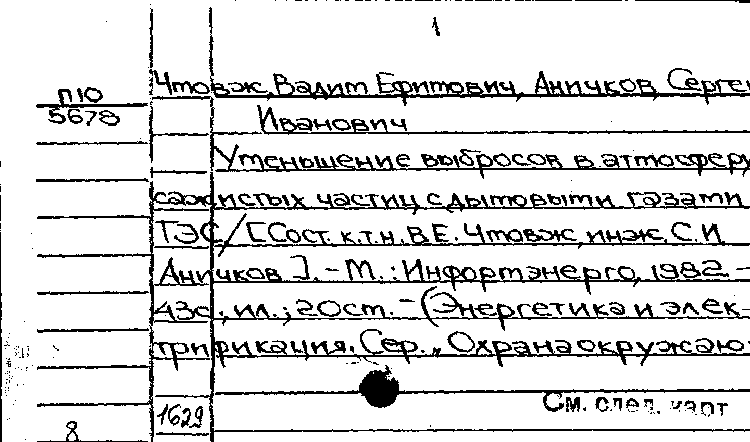 1
Чтовж, Вадим Ефимович, Аничков, Сергей
П10
5678
Иванович
Уменьшение выбросов в атмосферу
сажистых частиц с дымовыми газами
ТЭС/[Сост. к.т.н. В.Е. Чтовж, инж. С.И.
Аничков]. - М.: Информэнерго, 1982. -
43с., ил.; 20см. - (Энергетика и элек-
трификация. Сер. „Охрана окружаю-
См. след. карт
1629
8